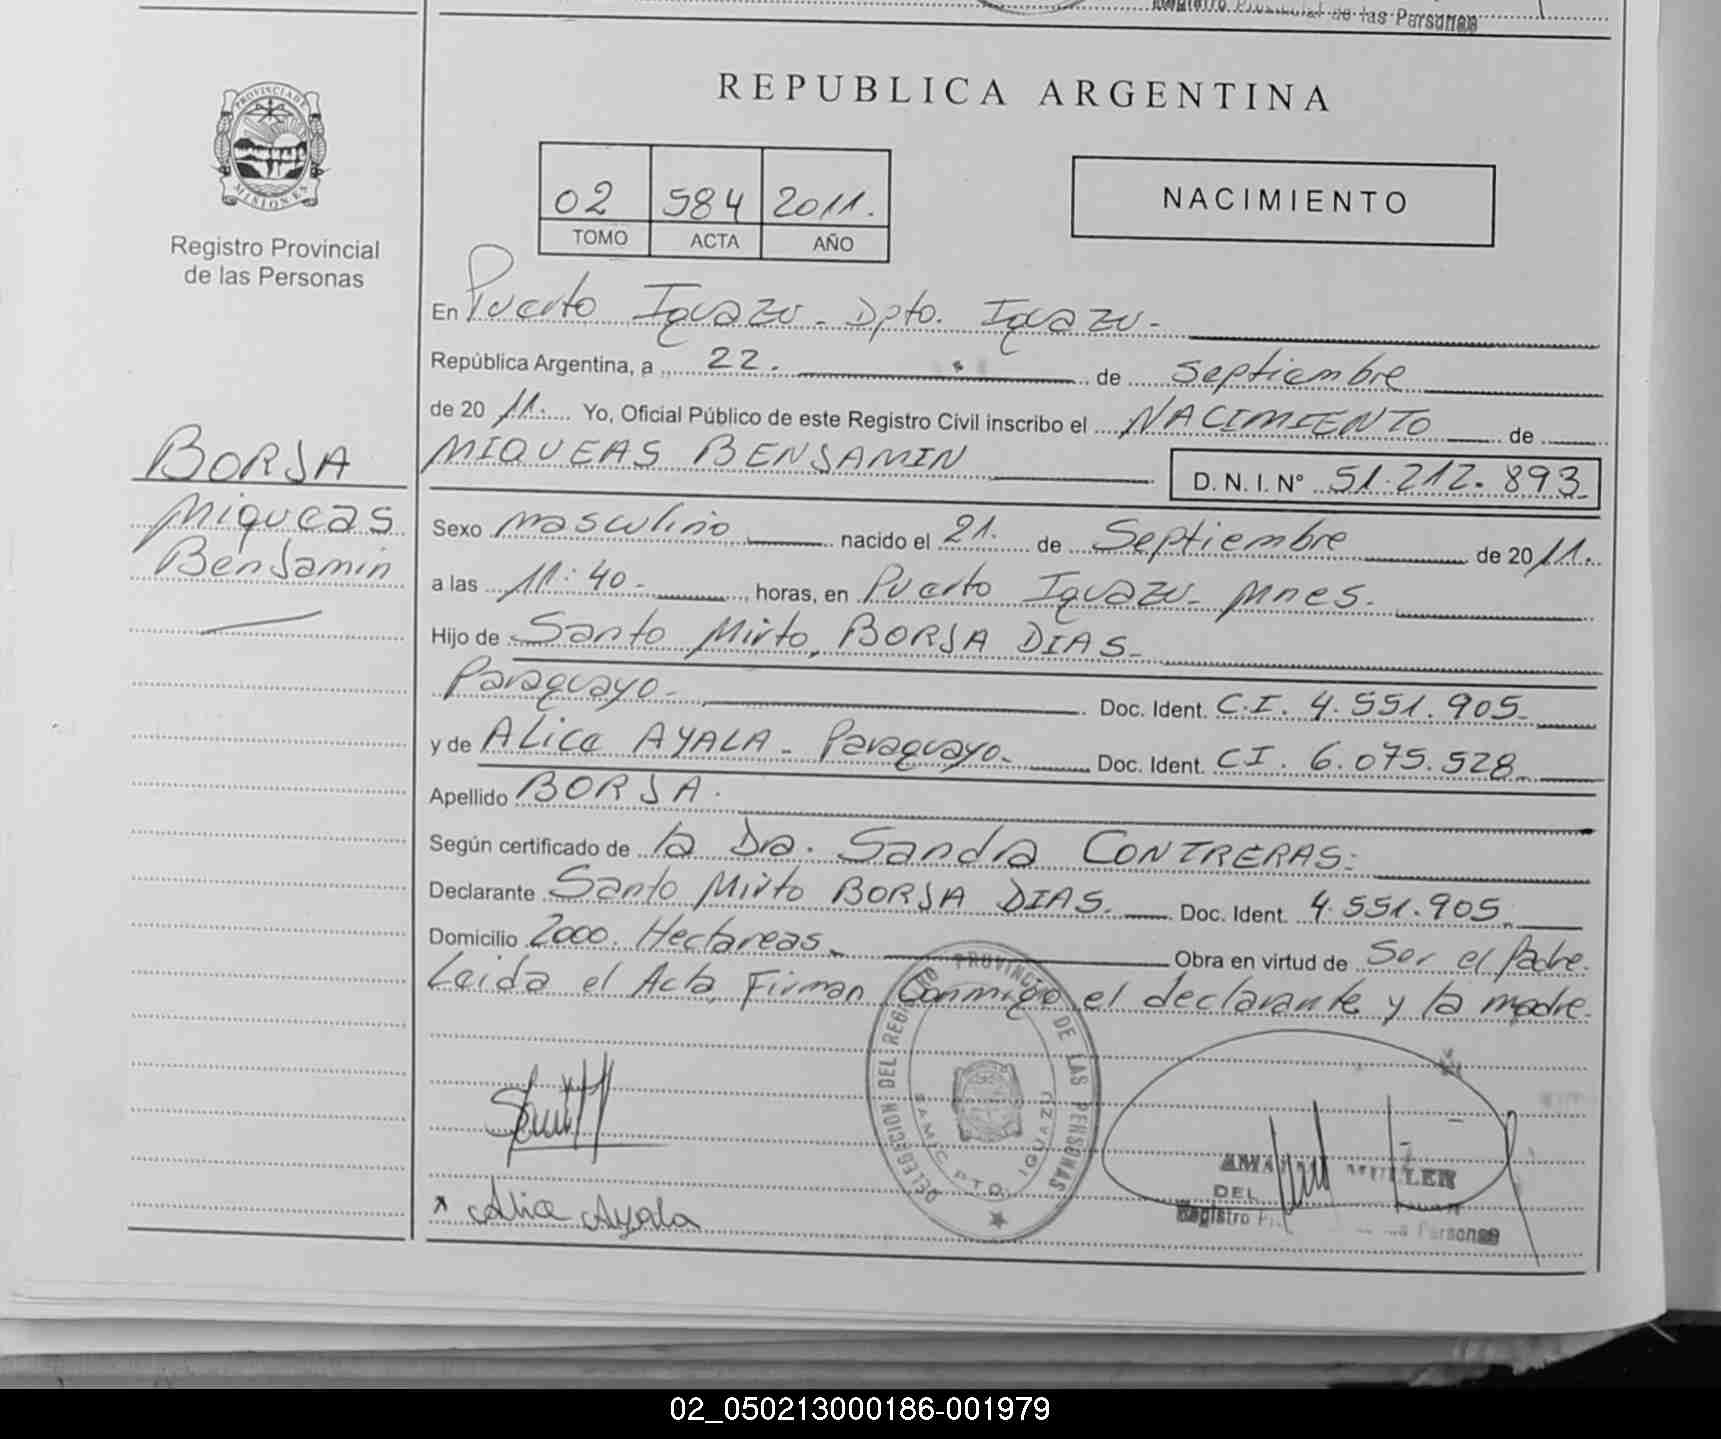 Registro Provincial de las Personas
REPUBLICA ARGENTINA
PROVINCIA DE
MISIONES
Registro Provincial
de las Personas
02 584 2011.
TOMO ACTA AÑO
NACIMIENTO
En Puerto Iguazu - Dpto. Iguazu -
República Argentina, a 22. de Septiembre
de 20 11. Yo, Oficial Público de este Registro Civil inscribo el NACIMIENTO de
MIQUEAS BENJAMIN D. N. I. N° 51.212.893-
BORJA
Miqueas
Benjamin
Sexo masculino nacido el 21. de Septiembre de 20 11.
a las 11:40- horas, en Puerto Iguazu- Mnes.
Hijo de Santo Mirto, BORJA DIAS-
Paraguayo- Doc. Ident. C.I. 4.551.905-
y de Alice AYALA - Paraguayo- Doc. Ident. CI. 6.075.528-
Apellido BORJA.
Según certificado de la Dra. Sandra CONTRERAS:
Declarante Santo Mirto BORJA DIAS. Doc. Ident. 4.551.905
Domicilio 2000. Hectareas- Obra en virtud de Ser el Padre.
Leida el Acta, Firman Conmigo el declarante y la madre.
DELEGACION DEL REGISTRO PROVINCIAL DE LAS PERSONAS
SAMIC PTO. IGUAZU
MULLER
DEL
Registro
Personas
Alice Ayala
02_050213000186-001979